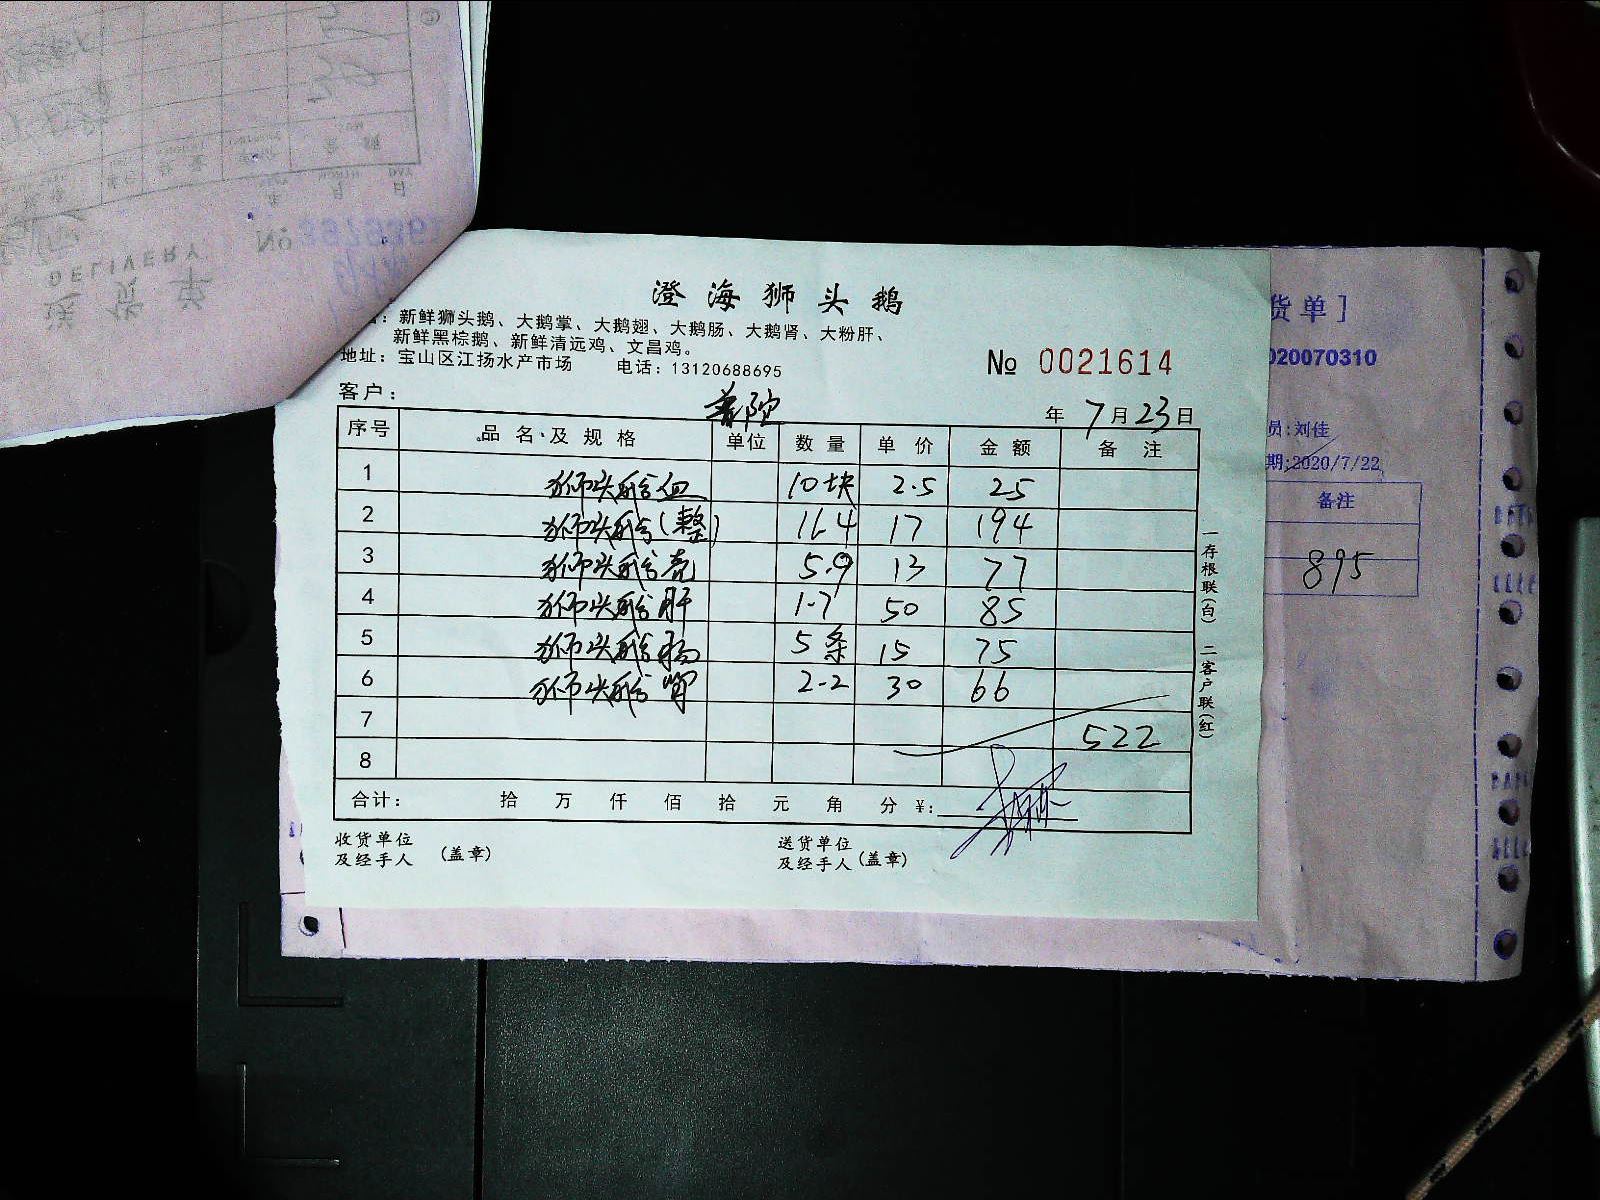 DELIVERY
送货单
No
澄海狮头鹅
新鲜狮头鹅、大鹅掌、大鹅翅、大鹅肠、大鹅肾、大粉肝、
新鲜黑棕鹅、新鲜清远鸡、文昌鸡。
地址：宝山区江扬水产市场 电话：13120688695
No 0021614
客户： 普陀 年 7月23日
序号 品名及规格 单位 数量 单价 金额 备注
1 狮头鹅血 10块 2.5 25
2 狮头鹅(整) 11.4 17 194
3 狮头鹅壳 5.9 13 77
4 狮头鹅肝 1.7 50 85
5 狮头鹅肠 5条 15 75
6 狮头鹅肾 2.2 30 66
7 522
8
合计： 拾 万 仟 佰 拾 元 角 分 ￥：
收货单位
及经手人 （盖章）
送货单位
及经手人（盖章）
一存根联(白) 二客户联(红)
货单]
020070310
员:刘佳
期:2020/7/22
备注
895